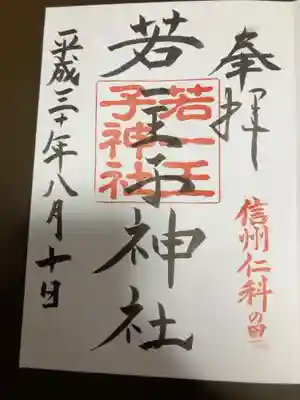 奉拝
信州仁科の里
若一王子神社
若一王
子神社
平成三十年八月十日